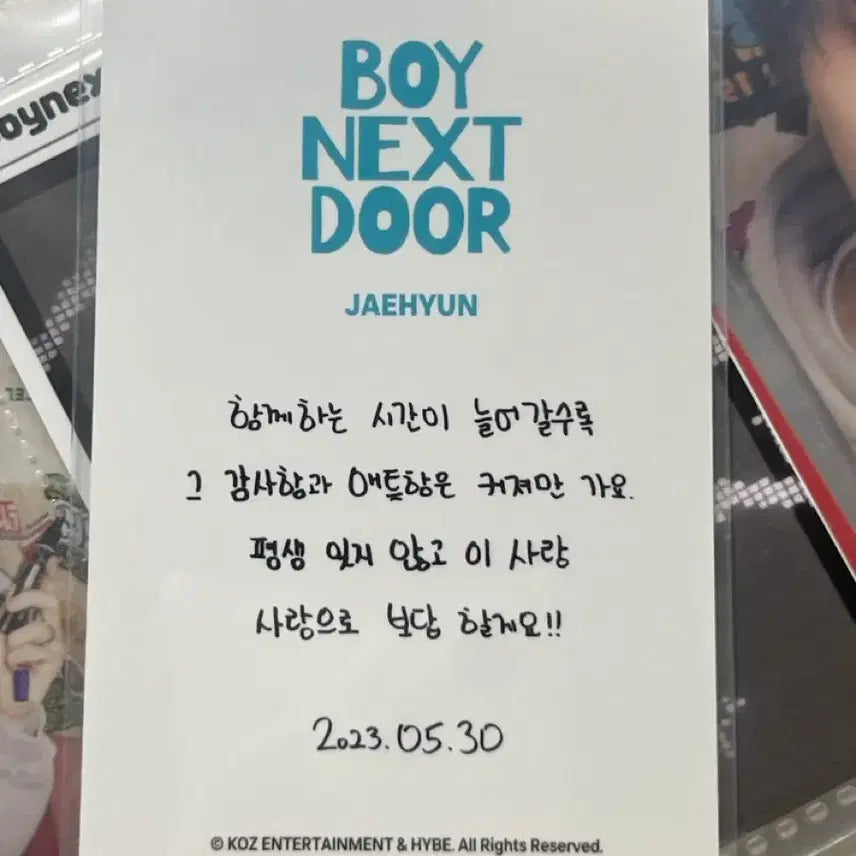 boynex
BOY
NEXT
DOOR
JAEHYUN
함께하는 시간이 늘어갈수록
그 감사함과 애틋함은 커져만 가요.
평생 잊지 않고 이 사랑
사랑으로 보답 할게요!!
2023.05.30
© KOZ ENTERTAINMENT & HYBE. All Rights Reserved.